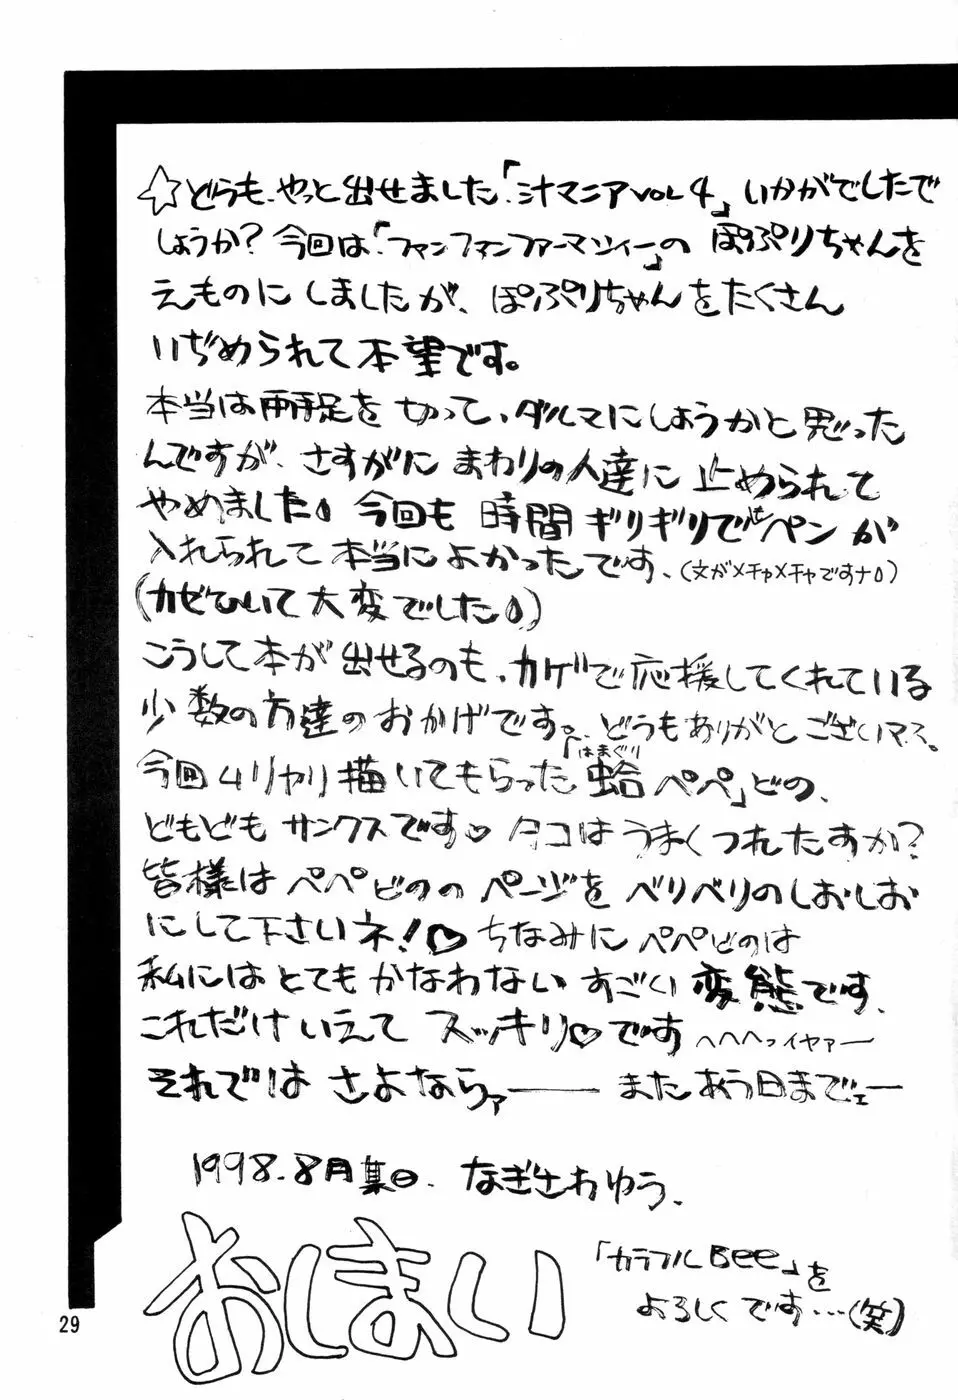 ☆どうも、やっと出せました「汁マニアvol4」いかがでしたで
しょうか？今回は「ファンファンファーマシィー」のぽぷりちゃんを
えものにしましたが、ぽぷりちゃんをたくさん
いぢめられて本望です。
本当は両手足を切って、ダルマにしようかと思った
んですが、さすがにまわりの人達に止められて
やめました。今回も時間ギリギリでペンが
入れられて本当によかったです、（文がメチャメチャですナ）
（カゼひいて大変でした）
こうして本が出せるのも、カゲで応援してくれている
少数の方達のおかげです。どうもありがとございマス。
今回ムリヤリ描いてもらった「蛤ペペ」どの、
はまぐり
どもどもサンクスです♡タコはうまくつれたすか？
皆様はペペどののページをベリベリのしおしお
にして下さいネ！♡ちなみにペペどのは
私にはとてもかなわないすごい変態です。
これだけいえてスッキリ♡です へへへっイヤァー
それではさよならァー――またあう日までェー
1998.8月集日. なぎさわゆう、
おしまい
「カラフルBee」を
よろしくです…（笑）
29